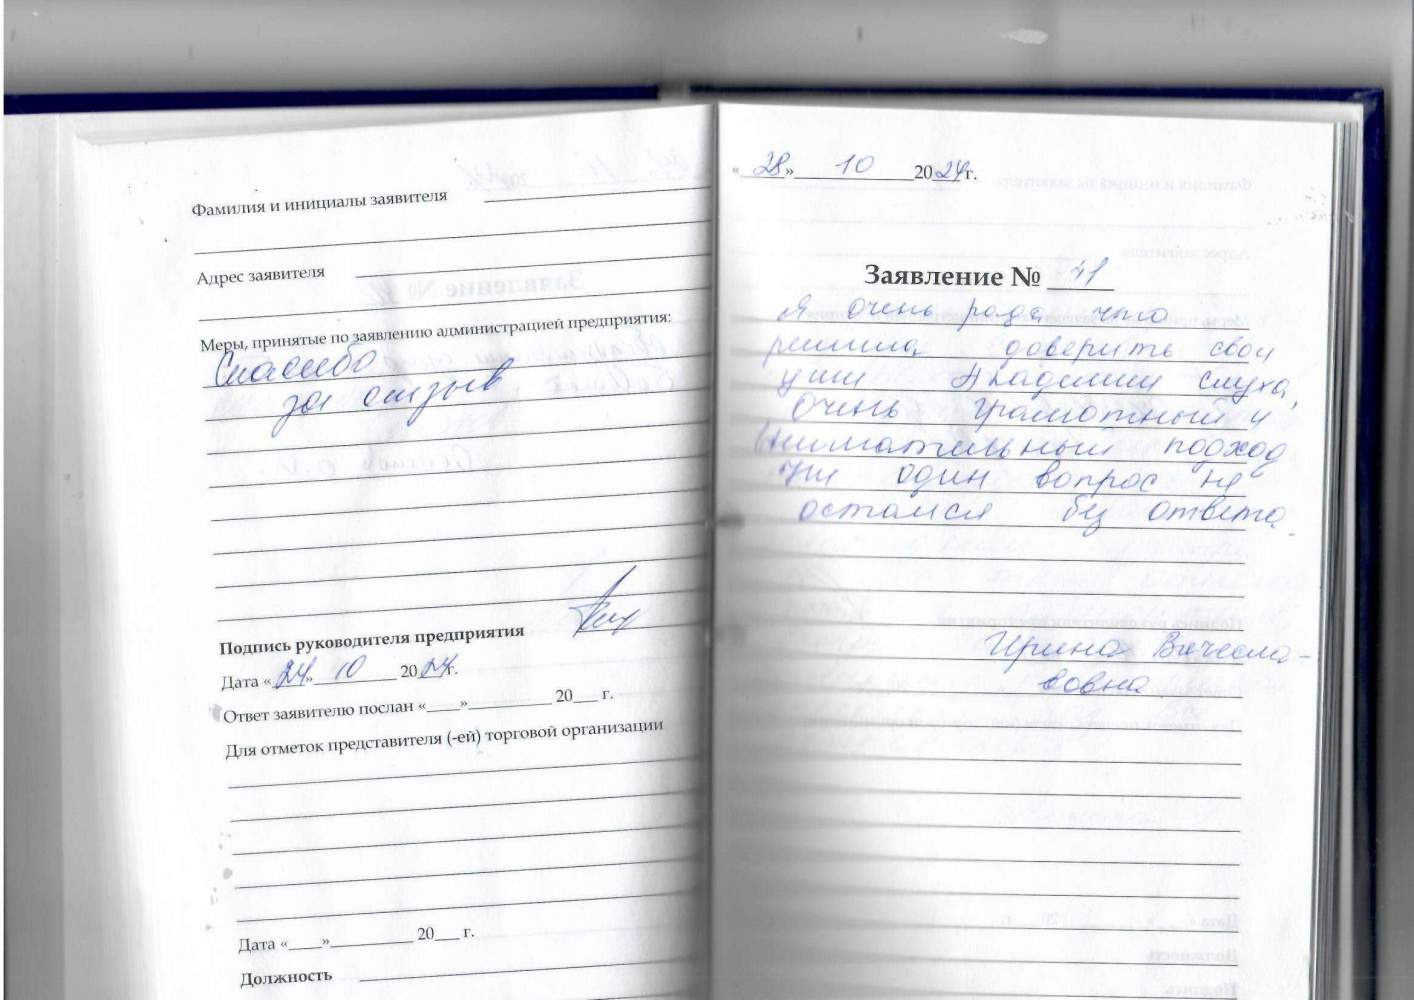 Фамилия и инициалы заявителя
Адрес заявителя
Меры, принятые по заявлению администрацией предприятия:
Спасибо
за отзыв
Подпись руководителя предприятия
Дата «24» 10 2024г.
Ответ заявителю послан «____»__________ 20___ г.
Для отметок представителя (-ей) торговой организации
Дата «____»__________ 20___ г.
Должность
«28» 10 2024г.
Заявление № 41
Я очень рада что
решила доверить свои
уши Академии слуха,
очень грамотный и
внимательный подход
ни один вопрос не
остался без ответа.
Ирина Вячесла-
вовна